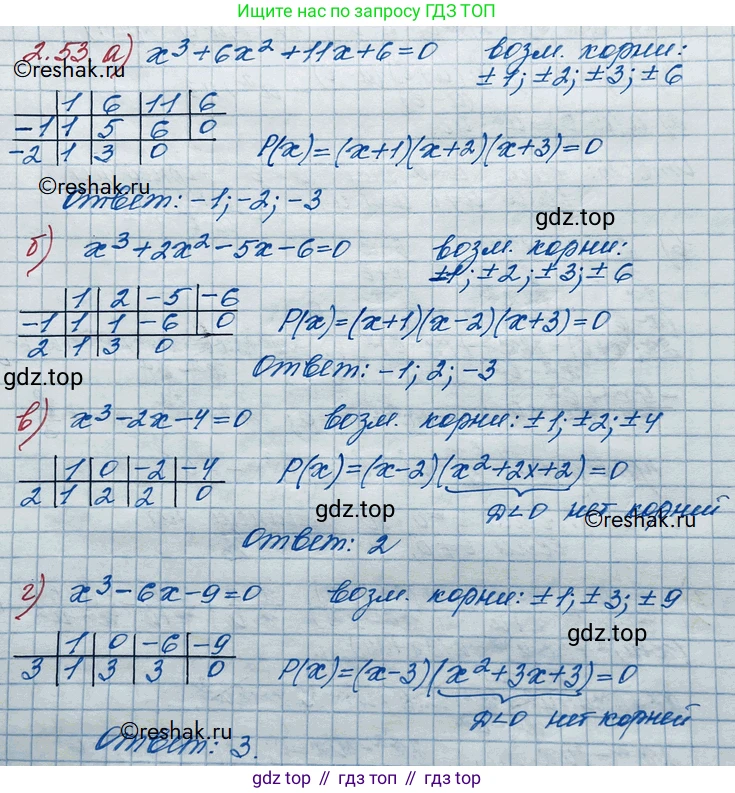 Ищите нас по запросу ГДЗ ТОП
2.53 а) x³+6x²+11x+6=0 возм. корни:
±1; ±2; ±3; ±6
©reshak.ru
1 6 11 6
-1 1 5 6 0
-2 1 3 0
P(x)=(x+1)(x+2)(x+3)=0
©reshak.ru
Ответ: -1; -2; -3
gdz.top
б) x³+2x²-5x-6=0 возм. корни:
±1; ±2; ±3; ±6
1 2 -5 -6
-1 1 1 -6 0
2 1 3 0
P(x)=(x+1)(x-2)(x+3)=0
Ответ: -1; 2; -3
gdz.top
в) x³-2x-4=0 возм. корни: ±1; ±2; ±4
1 0 -2 -4
2 1 2 2 0
P(x)=(x-2)(x²+2x+2)=0
D<0 нет корней
gdz.top
©reshak.ru
Ответ: 2
г) x³-6x-9=0 возм. корни: ±1; ±3; ±9
gdz.top
1 0 -6 -9
3 1 3 3 0
P(x)=(x-3)(x²+3x+3)=0
D<0 нет корней
©reshak.ru
Ответ: 3.
gdz top // гдз топ // gdz top // гдз топ